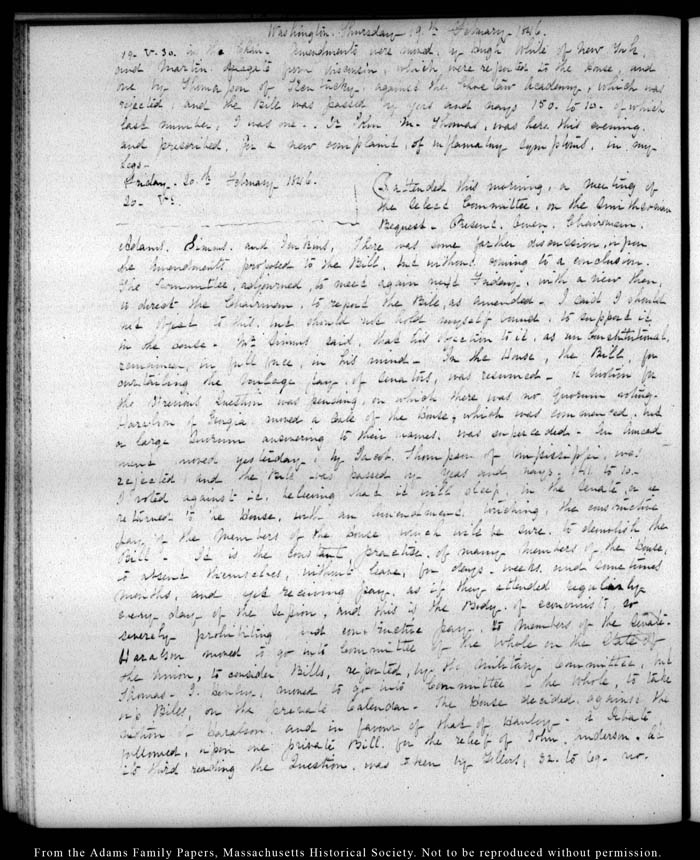 Washington. Thursday 19th February 1846.
19. V.30. in the Chair. Amendments were moved by Hugh White of New York,
and Martin delegate from Wisconsin, which were reported to the House, and
one by Thomasson of Kentucky, against the Choctaw academy, which was
rejected, and the Bill was passed by yeas and nays 150. to 10. of which
last number, I was one. Dr John M. Thomas, was here this evening.
and prescribed, for a new complaint, of inflamatory symptoms, in my
legs.
Friday. 20th February 1846.
20. V.
I attended this morning, a meeting of
the Select Committee, on the Smithsonian
Bequest. Present. Owen. Chairman.
Adams. Simms. and Jenkins, There was some further discussion, upon
the Amendments proposed to the Bill, but without coming to a conclusion.
The Committee, adjourned, to meet again next Friday, with a view then,
to direct the Chairman, to report the Bill, as amended. I said I should
not object to this, but should not hold myself bound, to support it,
in the House. Mr Simms said, that his objection to it, as unconstitutional,
remained in full force, in his mind. In the House, the Bill, for
curtailing the mileage pay, of Senators, was resumed. A motion for
the Previous Question was pending, on which there was no Quorum voting.
Haralson of Georgia moved a Call of the House, which was commenced, but
a large Quorum answering to their names, was superceded. An amend
ment, moved yesterday, by Jacob Thompson of Mississippi, was
rejected, and the Bill was passed by Yeas and nays. 141 to 10.
I voted against it, believing that it will sleep, in the Senate, or be
returned to the House, with an amendment touching, the constructive
pay of the members of the House, which will be sure, to demolish the
Bill. It is the constant practice, of many members of the House,
to absent themselves, without leave, for days, weeks, and sometimes
months, and yet receiving pay, as if they attended regularly
every day of the Session, and this is the Body of economists, so
severely prohibiting and constructive pay, to members of the Senate.
Haralson moved to go into Committee of the Whole on the State of
the Union, to consider Bills, reported, by the military Committee, but
Thomas J. Henley, moved to go into Committee of the Whole, to take
up Bills, on the private Calendar. The House decided against the
motion of Haralson and in favour of that of Henley. A debate
followed, upon one private Bill for the relief of John Anderson. At
its third reading the Question was taken by Tellers, 32. to 69. no.
From the Adams Family Papers, Massachusetts Historical Society. Not to be reproduced without permission.